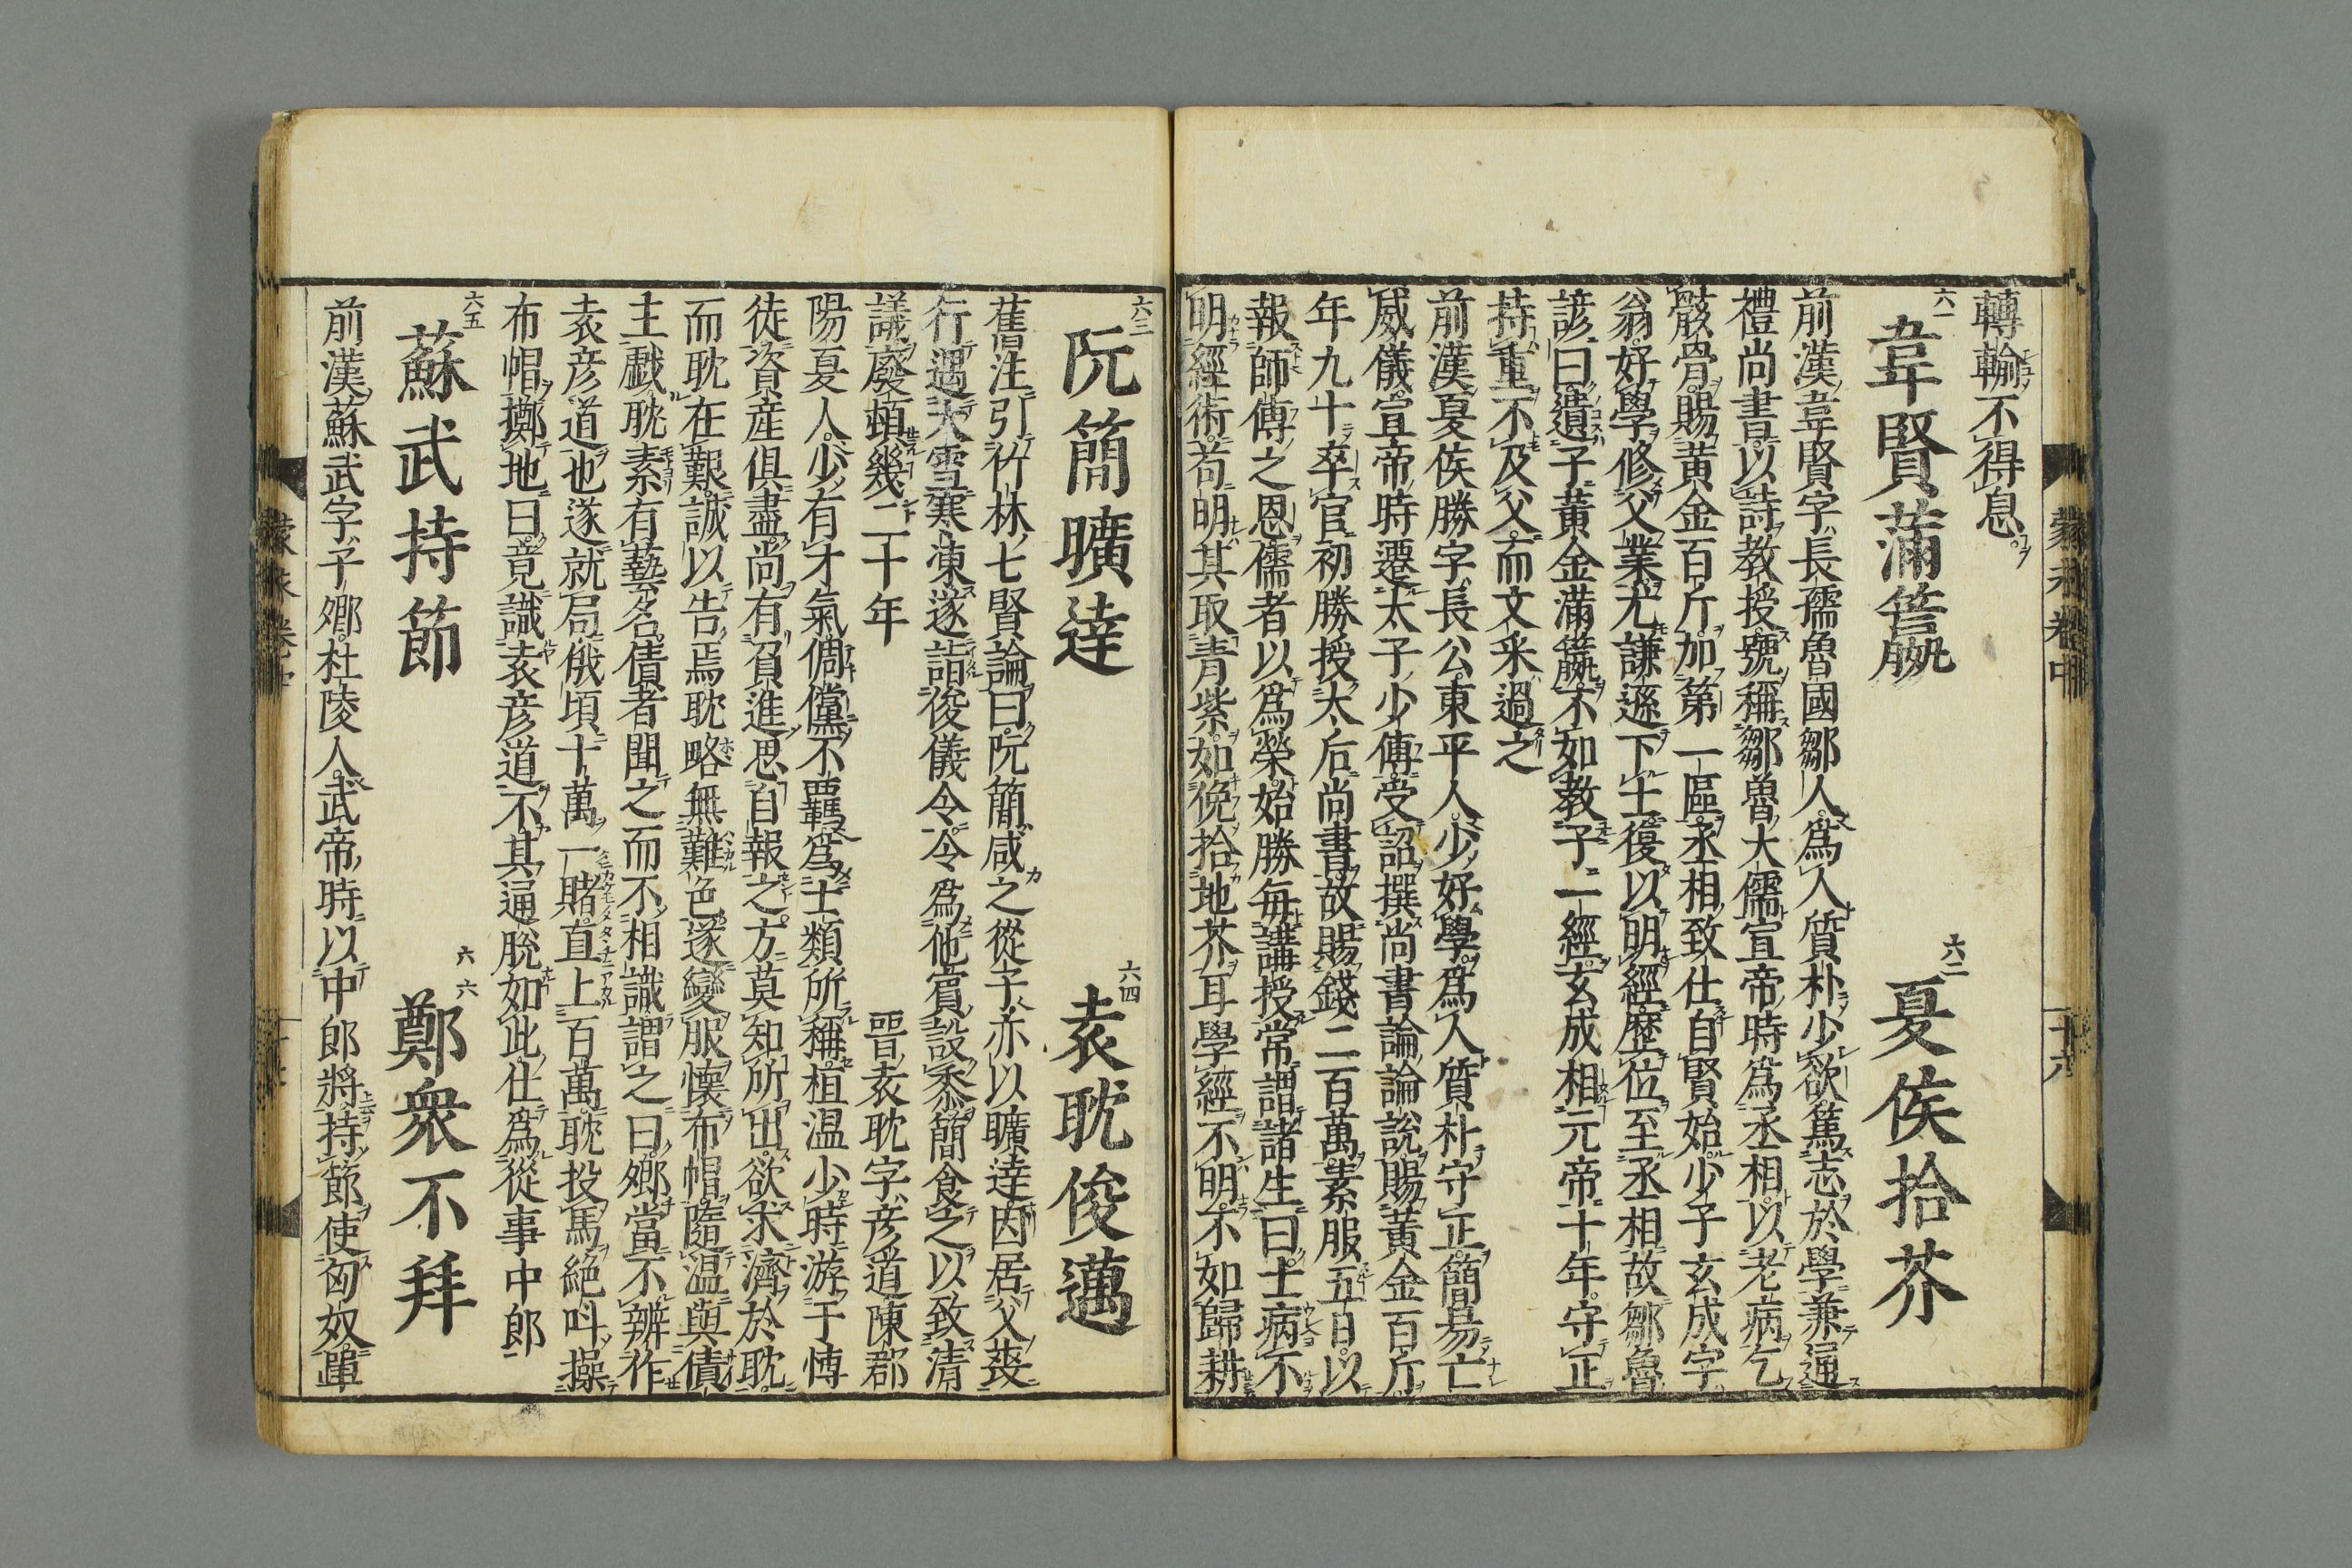 轉輸不得息
六一 韋賢滿籯 六二 夏侯拾芥
前漢韋賢字長孺魯國鄒人爲人質朴少欲篤志於學兼通
禮尚書以詩教授號稱鄒魯大儒宣帝時爲丞相以老病乞
骸骨賜黄金百斤加第一區丞相致仕自賢始少子玄成字
翁好學修父業尤謙遜下士復以明經歷位至丞相故鄒魯
諺曰遺子黄金滿籯不如教子一經玄成相元帝十年守正
持重不及父而文采過之
前漢夏侯勝字長公東平人少好學爲人質朴守正簡易亡
威儀宣帝時遷太子少傅受詔撰尚書論論說賜黄金百斤
年九十卒官初勝授太后尚書故賜錢二百萬素服五日以
報師傅之恩儒者以爲榮始勝毎講授常謂諸生曰士病不
明經術苟明其取青紫如俛拾地芥耳學經不明不如歸耕
六三 阮簡曠達 六四 袁耽俊邁
舊注引竹林七賢論曰阮簡咸之從子亦以曠達因居父䘮
行遇大雪寒凍遂詣俊儀令令爲他賓設黍簡食之以致清
議廢頓幾二十年 晋袁耽字彦道陳郡
陽夏人少有才氣倜儻不羈爲士類所稱桓温少時游于愽
徒資産俱盡尚有負進思自報之方莫知所出欲求濟於耽
而耽在艱誠以告焉耽略無難色遂變服懐布帽隨温與債
主戯耽素有藝名債者聞之而不相識謂之曰鄉當不辨作
袁彦道也遂就局俄頃十萬一賭直上百萬耽投馬絶叫操
布帽擲地曰竟識袁彦道不其通脫如此仕爲從事中郎
六五 蘇武持節 六六 鄭衆不拜
前漢蘇武字子鄉杜陵人武帝時以中郎將持節使匈奴單
蒙求卷中